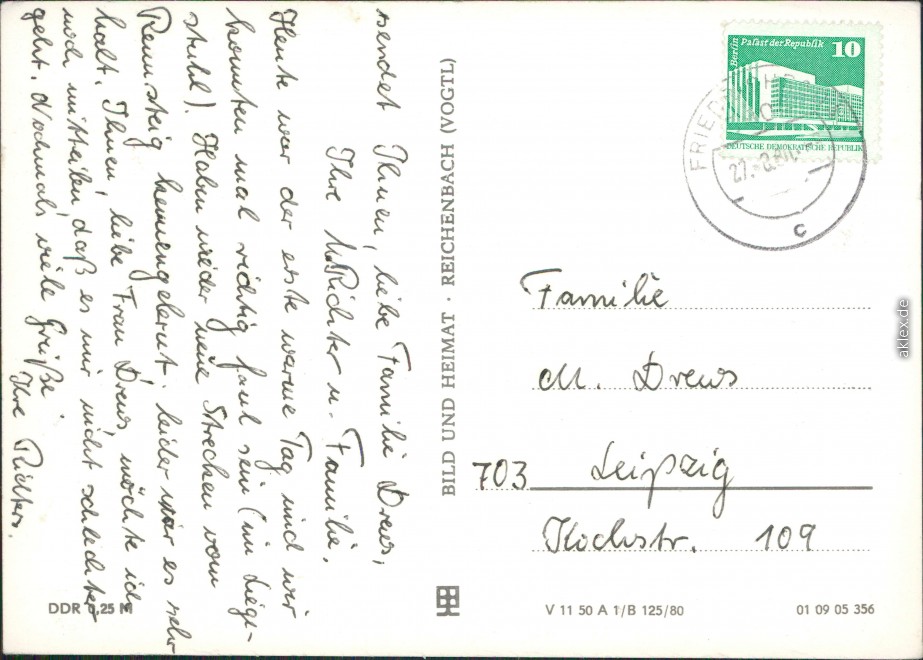 sendet Ihnen, liebe Familie Drews,
Ihre M. Richter u. Familie.
Heute war der erste warme Tag und wir
konnten mal richtig faul sein (im Liege-
stuhl). Haben wieder neue Strecken vom
Rennsteig kennengelernt. leider war es sehr
kalt. Ihnen, liebe Frau Drews, möchte ich
noch mitteilen, daß es mir nicht schlechter
geht. Nochmals viele Grüße
Ihre Richters.
DDR 0,25 M
BILD UND HEIMAT · REICHENBACH (VOGTL)
Berlin Palast der Republik 10
DEUTSCHE DEMOKRATISCHE REPUBLIK
FRIEDRICHRODA
27.-8.
c
Familie
M. Drews
703 Leipzig
Kochstr. 109
V 11 50 A 1/B 125/80
01 09 05 356
aklex.de